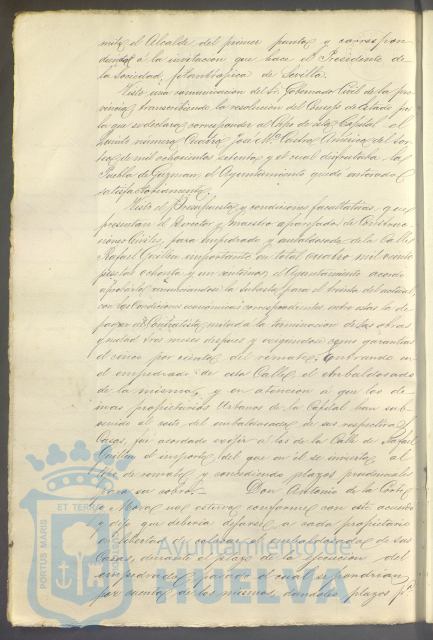 mita el Alcalde del primer punto, y correspon
diendo á la invitacion que hace el Presidente de
la Sociedad filantrópica de Sevilla.
Vista una comunicacion del Sr. Gobernador Civil de la pro
vincia transcribiendo la resolucion del Consejo de Estado por
la que se declara corresponder al Cupo de esta Capital el
Quinto número Cuatro José Mª Castro del Sor
teo de mil ochocientos setenta y el cual disputaba la
Puebla de Guzman, el Ayuntamiento quedó enterado
satisfactoriamente.
Visto el Presupuesto y condiciones facultativas que
presentan el Director y maestro aparejador de Construc
ciones Civiles, para empedrado y embaldosado de la Calle
Rafael Guillen importante en total cuatro mil ciento
pesetas ochenta y un centimos, el Ayuntamiento acordó
aprobarlo anunciandose la subasta para el treinta del actual,
con las Condiciones económicas correspondientes sobre estas la de
pagar al Contratista mitad á la terminacion de las obras
y mitad tres meses despues y exigiendose como garantia
el cinco por ciento del remate. Entrando en
el empedrado de esta Calle el embaldosado
de la misma, y en atencion á que los de
mas propietarios Urbanos de la Capital han sub
venido al coste del embaldosado de sus respectivas
Casas, fué acordado exigir á los de la Calle de Rafael
Guillen el importe del que en él se invierta, al
tipo de remate y concediendo plazos prudenciales
para su cobro. Don Antonio de la Corte
y Mora no estuvo conforme con este acuerdo
y dijo que deberia dejarse á cada propietario
en libertad de colocar el embaldosado de sus
Casas, durante el plazo de la ejecucion del
empedrado, pasado el cual se pondrian
por cuenta de los mismos, dandoles plazos pª
PORTUS MARIS
ET TERRAE
Ayuntamiento de
HUELVA